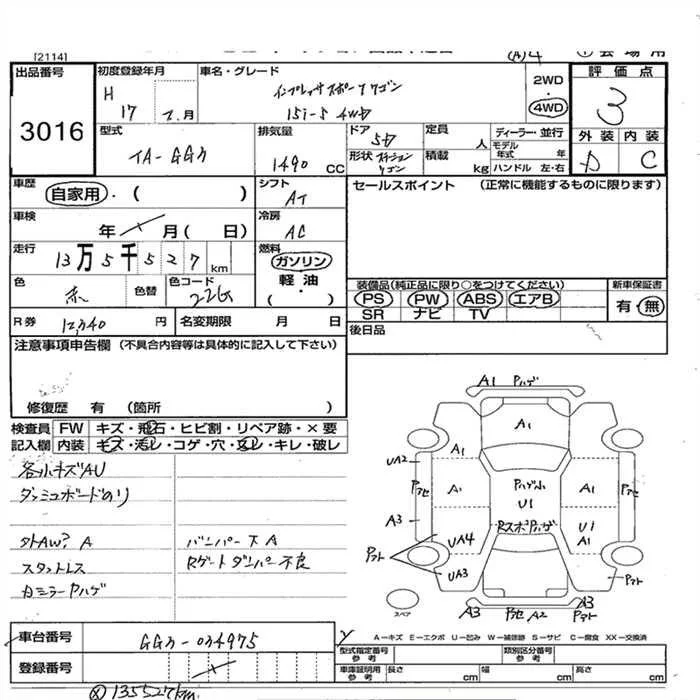 [2114]
出品番号
3016
初度登録年月
H 17 2.月
車名・グレード
インプレッサスポーツワゴン
15i-S 4WD
2WD
4WD
評価点
3
外装 内装
D C
型式
TA-GG3
排気量
1490 CC
ドア 5D
形状 ステーションワゴン
定員 人
積載 kg
ディーラー・並行
モデル年式 年
ハンドル 左・右
車歴
自家用・( )
シフト
AT
セールスポイント (正常に機能するものに限ります)
車検
年 月( 日)
冷房
AC
走行
13万5千527km
燃料
ガソリン
軽油
( ・ )
色
赤
色替
色コード
22G
装備品(純正品に限り○をつけてください)
PS PW ABS エアB
SR ナビ TV
新車保証書
有・無
R券 12,340 円
名変期限 月 日
後日品
注意事項申告欄 (不具合内容等は具体的に記入して下さい)
修復歴 有 (箇所 )
検査員記入欄
FW キズ・飛石・ヒビ割・リペア跡・×要
内装 キズ・汚レ・コゲ・穴・返レ・キレ・破レ
各小キズAU
ダッシュボードのり
外AW? A
バンパー下A
スタットレス
Rゲートダンパー不良
カミラーPハゲ
A1 Pハゲ
A1
A1
UA2
Pアセ
A1
Pハゲ小
U1
A1
Pアセ
A3
RスポPハゲ
U1
A1
Pアト
UA4
UA3
Pアト
スペア
A3 Pアセ A2 A3 Pアト
車台番号
GG3-034975
登録番号
A—キズ E—エクボ U—凹み W—補修跡 S—サビ C—腐食 XX—交換済
型式指定番号 参考
類別区分番号 参考
車庫証明用 参考
長さ cm
幅 cm
高さ cm
135527km